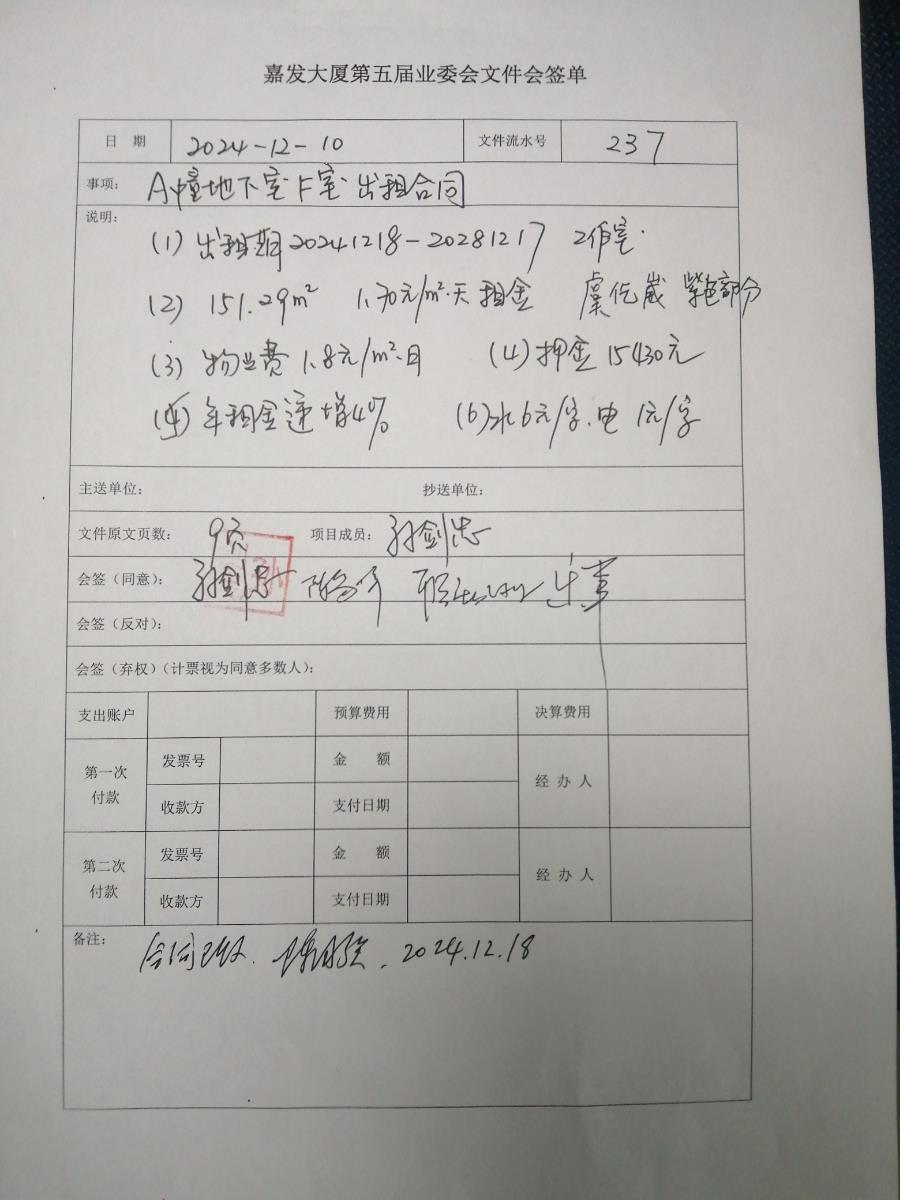 嘉发大厦第五届业委会文件会签单
日 期 2024-12-10 文件流水号 237
事项: A幢地下室F室 出租合同
说明:
(1) 出租期 20241218-20281217 工作室
(2) 151.29m² 1.70元/m²·天 租金 虞仡崴 紫色部分
(3) 物业费 1.8元/m²·日 (4) 押金 15430元
年租金递增4% (6) 水6元/字、电 1元/字
主送单位: 抄送单位:
文件原文页数: 9页 项目成员: 孙剑忠
会签(同意): 孙剑忠
会签(反对):
会签(弃权)(计票视为同意多数人):
支出账户 预算费用 决算费用
第一次付款 发票号 金 额 经 办 人
收款方 支付日期
第二次付款 发票号 金 额 经 办 人
收款方 支付日期
备注: 合同 2024.12.18